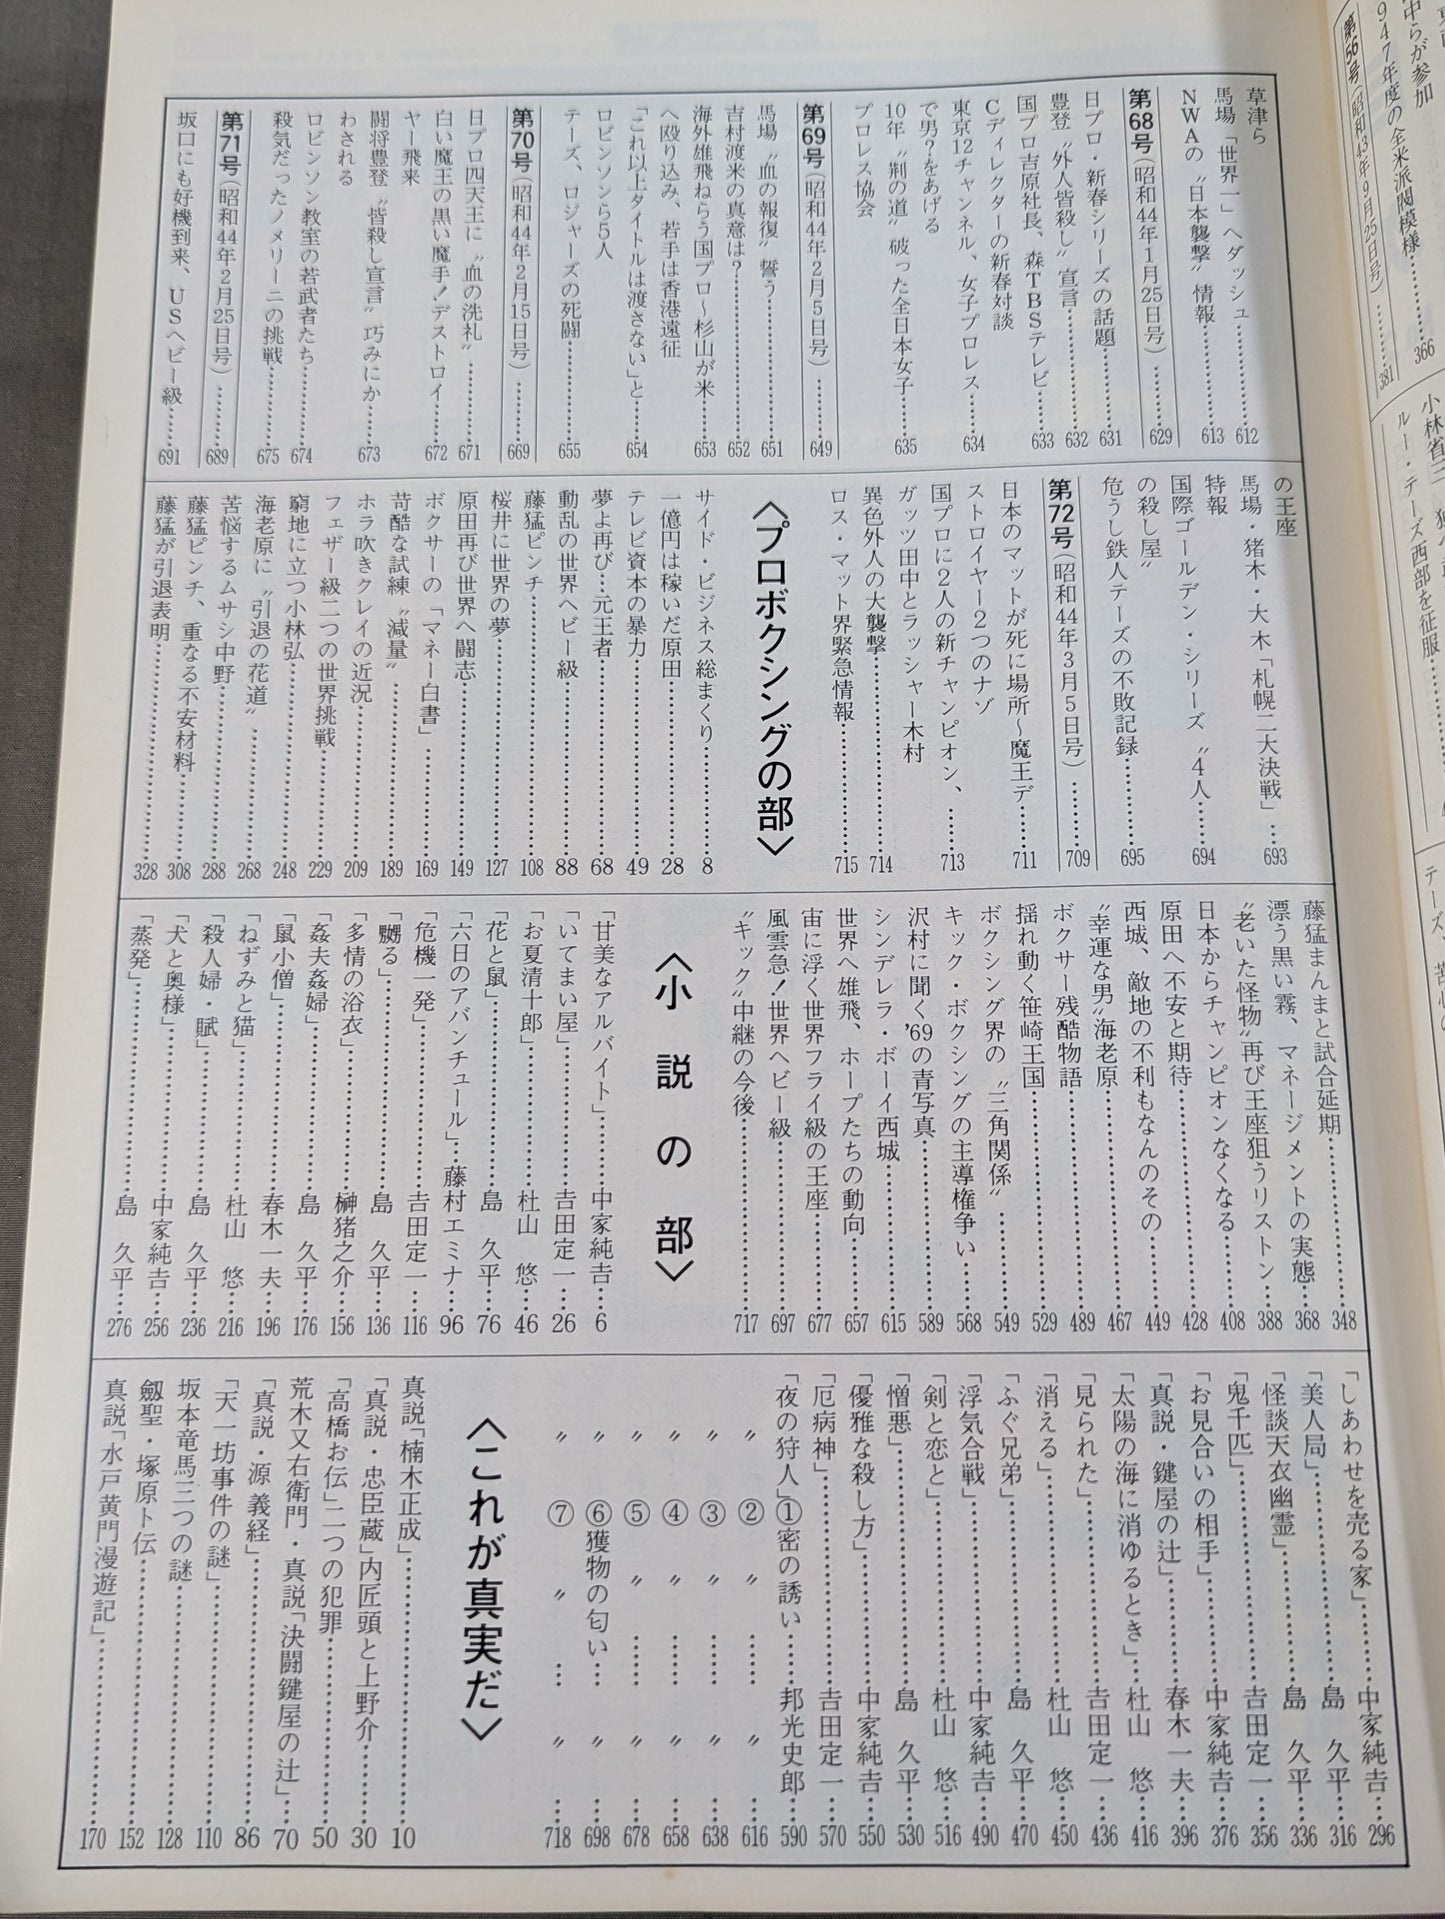 草津ら
馬場「世界一」へダッシュ……612
NWAの〝日本襲撃〟情報……613
第68号(昭和44年1月25日号)……629
日プロ・新春シリーズの話題……631
豊登〝外人皆殺し〟宣言……632
国プロ吉原社長、森TBSテレビ
Cディレクターの新春対談……633
東京12チャンネル、女子プロレス
で男?をあげる……634
10年〝荊の道〟破った全日本女子
プロレス協会……635
第69号(昭和44年2月5日号)……649
馬場〝血の報復〟誓う……651
吉村渡米の真意は?……652
海外雄飛ねらう国プロ〜杉山が米
へ殴り込み、若手は香港遠征……653
「これ以上タイトルは渡さない」と
ロビンソンら5人……654
テーズ、ロジャースの死闘……655
第70号(昭和44年2月15日号)……669
日プロ四天王に〝血の洗礼〟……671
白い魔王の黒い魔手!デストロイ
ヤー飛来……672
闘将豊登〝皆殺し宣言〟巧みにか
わされる……673
ロビンソン教室の若武者たち……674
殺気だったノメリーニの挑戦……675
第71号(昭和44年2月25日号)……689
坂口にも好機到来、USヘビー級……691
の王座
馬場・猪木・大木「札幌二大決戦」…693
特報
国際ゴールデン・シリーズ〝4人
の殺し屋〟……694
危うし鉄人テーズの不敗記録……695
第72号(昭和44年3月5日号)……709
日本のマットが死に場所〜魔王デ
ストロイヤー2つのナゾ……711
国プロに2人の新チャンピオン、
ガッツ田中とラッシャー木村……713
異色外人の大襲撃……714
ロス・マット界緊急情報……715
〈プロボクシングの部〉
サイド・ビジネス総まくり……8
一億円は稼いだ原田……28
テレビ資本の暴力……49
夢よ再び…元王者……68
動乱の世界ヘビー級……88
藤猛ピンチ……108
桜井に世界の夢……127
原田再び世界へ闘志……149
ボクサーの「マネー白書」……169
苛酷な試練〝減量〟……189
ホラ吹きクレイの近況……209
フェザー級二つの世界挑戦……229
窮地に立つ小林弘……248
海老原に〝引退の花道〟……268
苦悩するムサシ中野……288
藤猛ピンチ、重なる不安材料……308
藤猛が引退表明……328
藤猛まんまと試合延期……348
漂う黒い霧、マネージメントの実態…368
〝老いた怪物〟再び王座狙うリストン…388
日本からチャンピオンなくなる……408
原田へ不安と期待……428
西城、敵地の不利もなんのその……449
〝幸運な男〟海老原……467
ボクサー残酷物語……489
揺れ動く笹崎王国……529
ボクシング界の〝三角関係〟……549
キック・ボクシングの主導権争い……568
沢村に聞く'69の青写真……589
シンデレラ・ボーイ西城……615
世界へ雄飛、ホープたちの動向……657
宙に浮く世界フライ級の王座……677
風雲急!世界ヘビー級……697
〝キック〟中継の今後……717
〈小説の部〉
「甘美なアルバイト」……中家純吉…6
「いてまい屋」……吉田定一…26
「お夏清十郎」……杜山 悠…46
「花と鼠」……島 久平…76
「六日のアバンチュール」…藤村エミナ…96
「危機一発」……吉田定一…116
「嬲る」……島 久平…136
「多情の浴衣」……榊猪之介…156
「姦夫姦婦」……島 久平…176
「鼠小僧」……春木一夫…196
「ねずみと猫」……杜山 悠…216
「殺人婦・賦」……島 久平…236
「犬と奥様」……中家純吉…256
「蒸発」……島 久平…276
「しあわせを売る家」……中家純吉…296
「美人局」……島 久平…316
「怪談天衣幽霊」……島 久平…336
「鬼千匹」……吉田定一…356
「お見合いの相手」……中家純吉…376
「真説・鍵屋の辻」……春木一夫…396
「太陽の海に消ゆるとき」…杜山 悠…416
「見られた」……吉田定一…436
「消える」……杜山 悠…450
「ふぐ兄弟」……島 久平…470
「浮気合戦」……中家純吉…490
「剣と恋と」……杜山 悠…516
「憎悪」……島 久平…530
「優雅な殺し方」……中家純吉…550
「厄病神」……吉田定一…570
「夜の狩人」①密の誘い……邦光史郎…590
〃 ② 〃 …… 〃 …616
〃 ③ 〃 …… 〃 …638
〃 ④ 〃 …… 〃 …658
〃 ⑤ 〃 …… 〃 …678
〃 ⑥獲物の匂い… 〃 …698
〃 ⑦ 〃 … 〃 …718
〈これが真実だ〉
真説「楠木正成」……10
「真説・忠臣蔵」内匠頭と上野介……30
「高橋お伝」二つの犯罪……50
荒木又右衛門・真説「決闘鍵屋の辻」…70
「真説・源 義経」……86
「天一坊事件の謎」……110
坂本竜馬三つの謎……128
劔聖・塚原卜伝……152
真説「水戸黄門漫遊記」……170
中らが参加
947年度の全米派閥模様……366
第56号(昭和43年9月25日号)……381
ルー・テーズ西部を征服